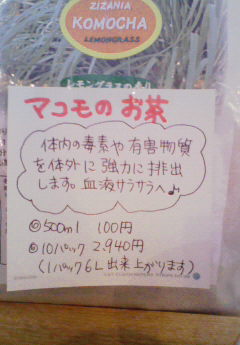 ZIZANIA
KOMOCHA
LEMONGRASS
レモングラスの香り
マコモのお茶
体内の毒素や有害物質
を体外に強力に排出
します。血液サラサラへ♪
500ml 100円
10パック 2,940円
(1パック6L出来上がります)